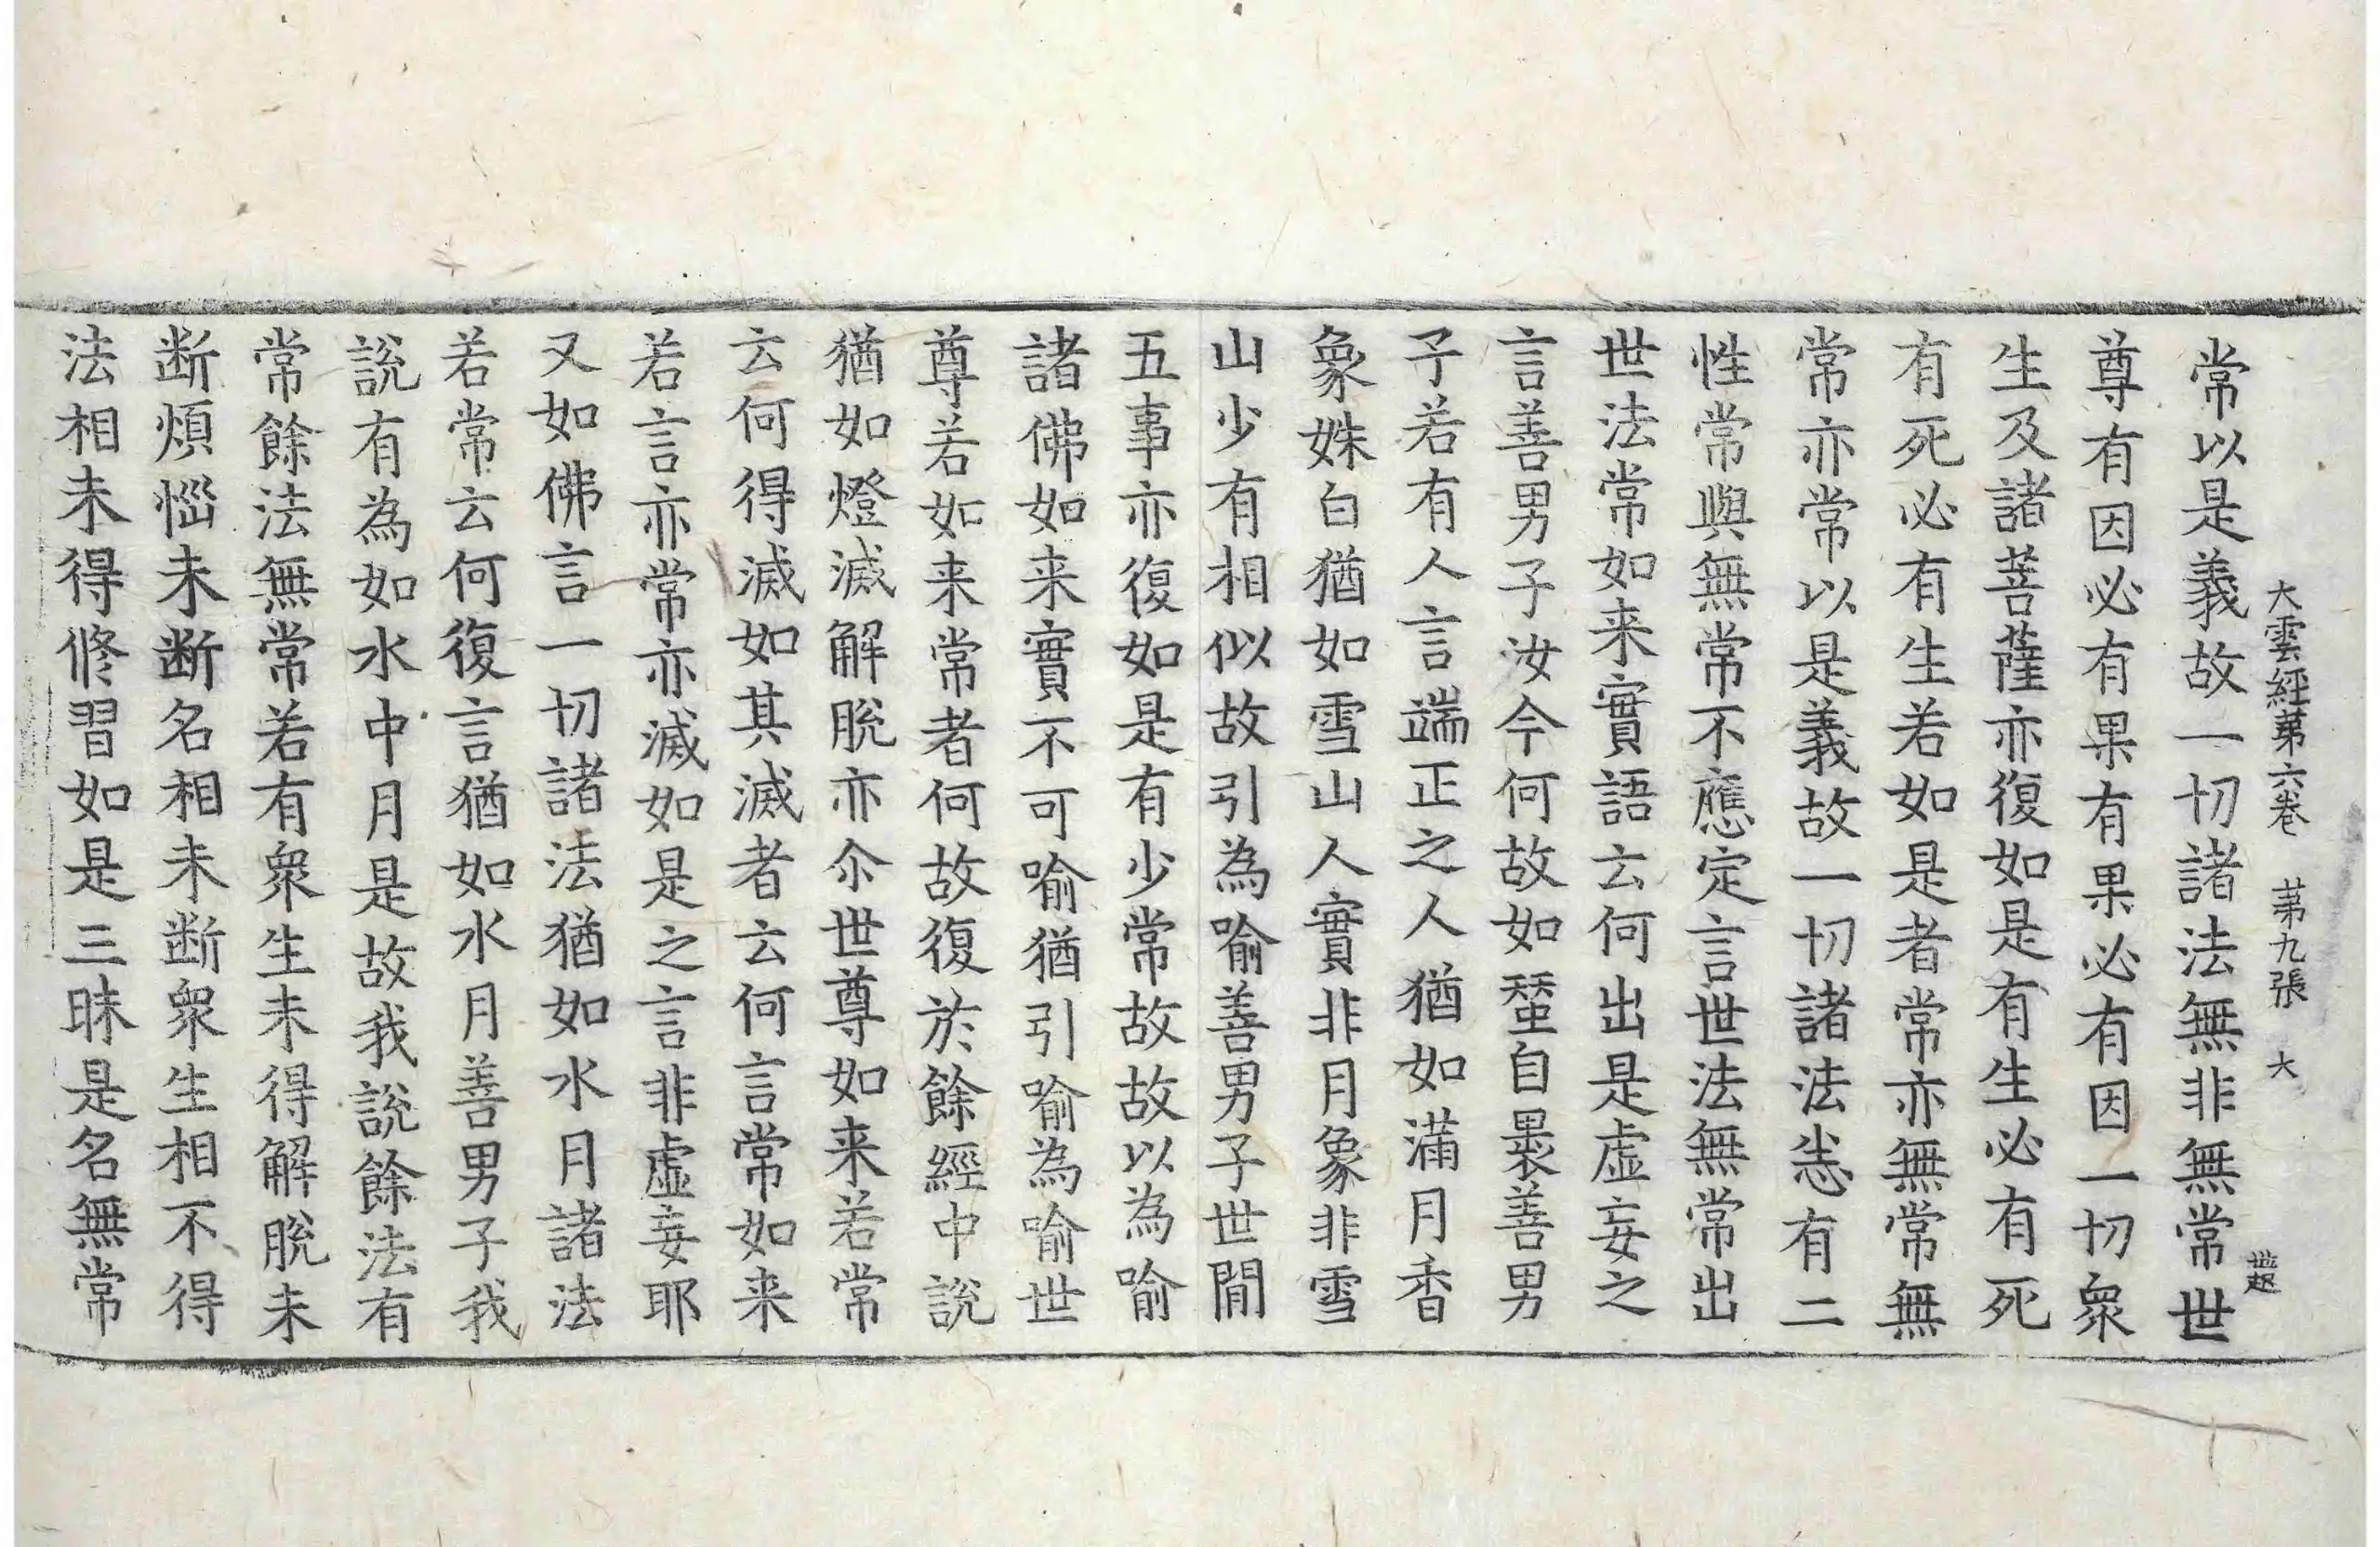 大雲經第六卷 第九張 大
世起
常以是義故一切諸法無非無常世
尊有因必有果有果必有因一切衆
生及諸菩薩亦復如是有生必有死
有死必有生若如是者常亦無常無
常亦常以是義故一切諸法恙有二
性常與無常不應定言世法無常出
世法常如来實語云何出是虛妄之
言善男子汝今何故如蝅自褁善男
子若有人言端正之人猶如滿月香
象姝白猶如雪山人實非月象非雪
山少有相似故引為喻善男子世間
五事亦復如是有少常故故以為喻
諸佛如来實不可喻猶引喻為喻世
尊若如来常者何故復於餘經中說
猶如燈滅解脫亦尒世尊如来若常
云何得滅如其滅者云何言常如来
若言亦常亦滅如是之言非虛妄耶
又如佛言一切諸法猶如水月諸法
若常云何復言猶如水月善男子我
說有為如水中月是故我說餘法有
常餘法無常若有衆生未得解脫未
断煩惱未断名相未断衆生相不得
法相未得修習如是三昧是名無常